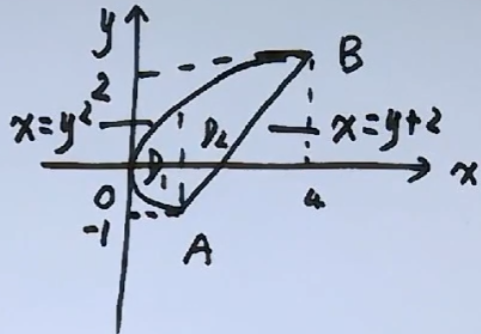 y
B
2
x=y²
D₂
x=y+2
D₁
x
0
4
-1
A